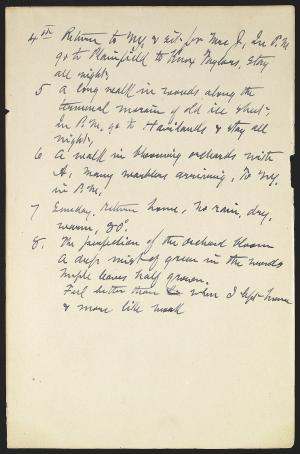 4th Return to N.Y. & sit for Mrs J, In P.M.
go to Plainfield to Knox Taylors, stay
all night,
5 A long walk in woods along the
terminal morain of old ice sheet,
In P.M. go to Havilands & stay all
night,
6 A walk in blooming orchards with
A, many warblers arriving, To N.Y.
in P.M.
7 Sunday. Return home, No rain, dry,
warm, 80°
8. The perfection of the orchard bloom
A deep mist of green in the woods
maple leaves half grown.
Feel better than when I left home
& more like work